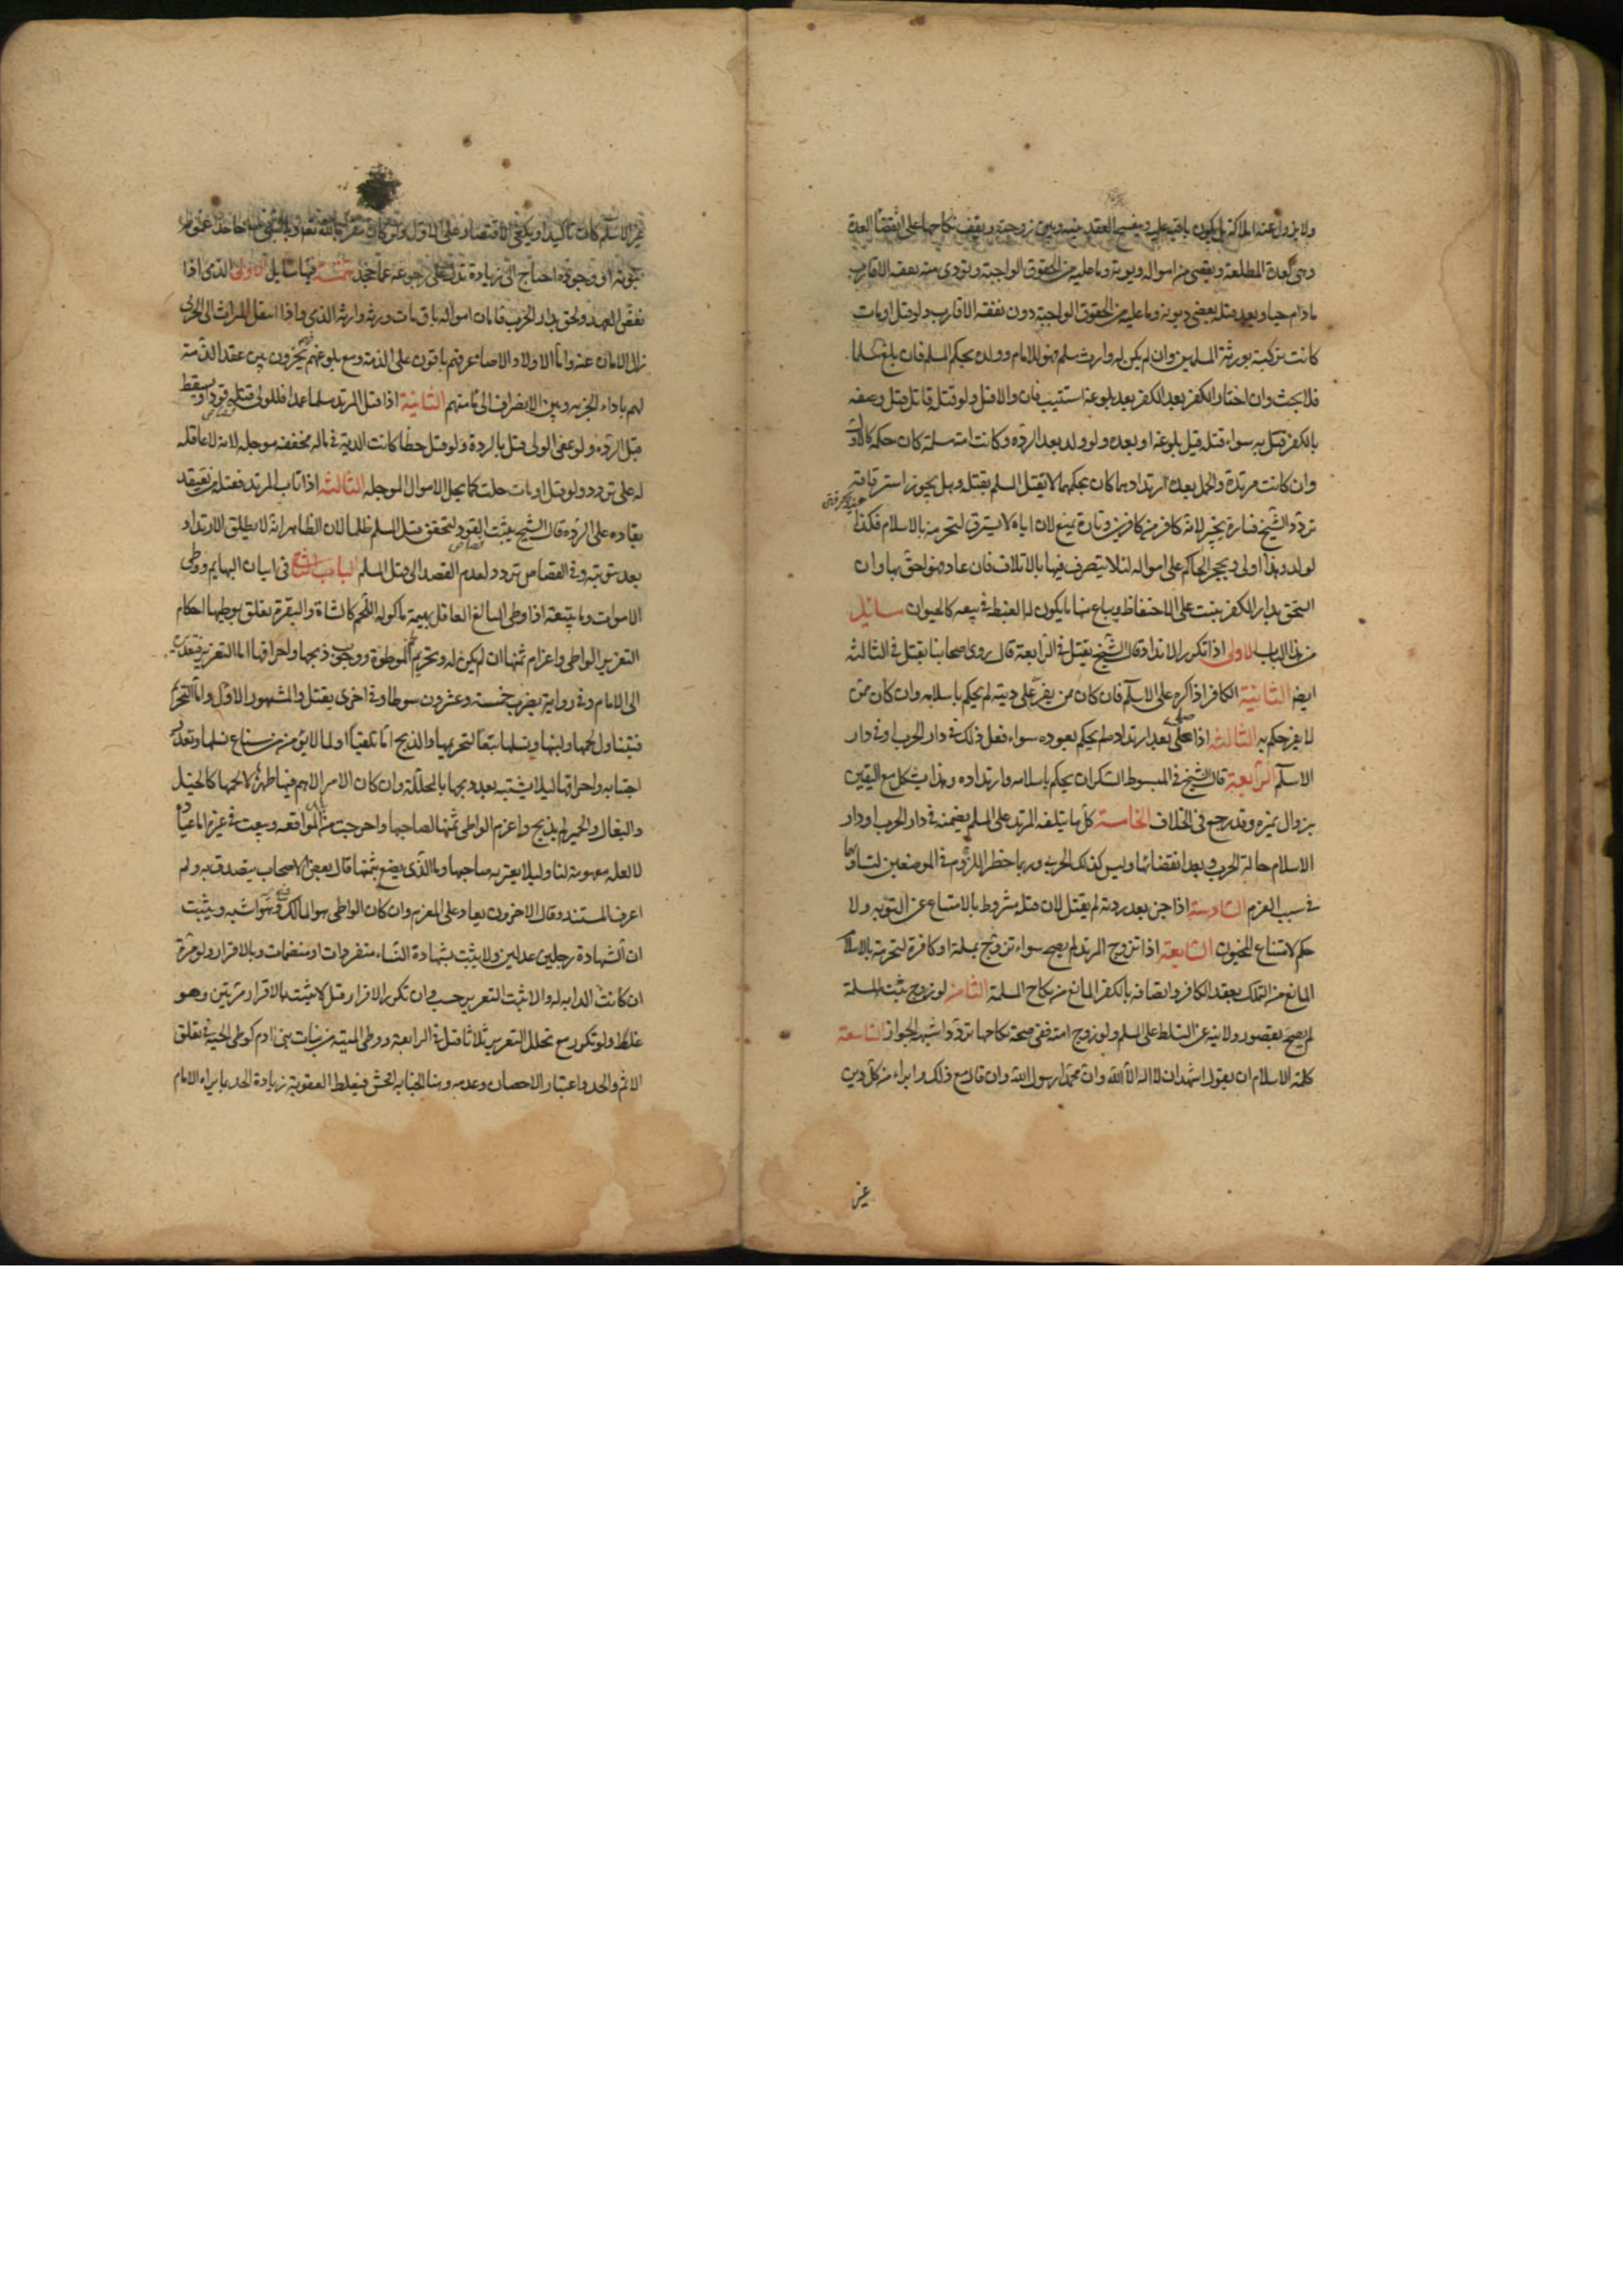 ولا يزول عنه املاكه بل يكون باقية عليه وينفسخ العقد بينه وبين زوجته ويقف نكاحها على انقضاء العدة
وهي كعدة المطلقة ويقضى من امواله ديونه وما عليه من الحقوق الواجبة ويؤدى منه نفقة الاقارب
ما دام حيا وبعد قتله يقضى ديونه وما عليه من الحقوق الواجبة دون نفقة الاقارب ولو قتل او مات
كانت تركته لورثته المسلمين وان لم يكن له وارث مسلم فهو للامام وولده بحكم المسلم فان بلغ مسلما
فلا بحث وان اختار الكفر بعد بلوغه استتيب فان والا قتل ولو قتله قاتل قبل وصفه
بالكفر قتل به سواء قتله قبل بلوغه او بعده ولو ولد بعد الردة وكانت امه مسلمة كان حكمه كالاول
وان كانت مرتدة والحمل بعد ارتدادهما كان بحكمهما لا يقتل المسلم بقتله وهل يجوز استرقاقه
تردد الشيخ فتارة يجيز لانه كافر من كافرين وتارة يمنع لان اباه لا يسترق لتحرمه بالاسلام فكذا
الولد وهذا اولى ويحجر الحاكم على امواله لئلا يتصرف فيها بالاتلاف فان عاد فهو احق بها وان
التحق بدار الكفر بقيت على الاحتفاظ ويباع منها ما يكون له الغبطة في بيعه كالحيوان مسائل
من هذا الباب الاولى اذا تكرر الارتداد قال الشيخ يقتل في الرابعة قال روى اصحابنا يقتل في الثالثة
ايضا الثانية الكافر اذا اكره على الاسلام فان كان ممن يقر على دينه لم يحكم باسلامه وان كان ممن
لا يقر حكم به الثالثة اذا صلى بعد ارتداده لم يحكم بعوده سواء فعل ذلك في دار الحرب او في دار
الاسلام الرابعة قال الشيخ في المبسوط السكران يحكم باسلامه وارتداده وهذا يشكل مع اليقين
بزوال تميزه وقد رجع في الخلاف الخامسة كل ما يتلفه المرتد على المسلم يضمنه في دار الحرب او دار
الاسلام حالة الحرب وبعد انقضائها وليس كذلك الحربي وربما خطر اللزوم في الموضعين لتساويهما
في سبب الغرم السادسة اذا جن بعد ردته لم يقتل لان قتله مشروط بالامتناع عن التوبة ولا
حكم لامتناع المجنون السابعة اذا تزوج المرتد لم يصح سواء تزوج بمسلمة او كافرة لتحرمه بالاسلام
المانع من التمسك بعقد الكافر واتصافه بالكفر المانع من نكاح المسلمة الثامنة لو زوج بنته المسلمة
لم يصح لقصور ولايته عن التسلط على المسلم ولو زوج امته ففي صحة نكاحها تردد اشبهه الجواز التاسعة
كلمة الاسلام ان يقول اشهد ان لا اله الا الله وان محمدا رسول الله وان قال مع ذلك وابراء من كل دين
غير
غير الاسلام كان تاكيدا ويكفي الاقتصار على الاول ولو كان مقرا بالله تعم وبالنبي جاحدا عموم
نبوته او وجوده احتاج الى زيادة تدل على رجوعه عما جحد تتمة فيها مسايل الاولى الذمي اذا
نقض العهد ولحق بدار الحرب فامان امواله باق مات ورثه وارثه الذمي واذا انتقل الميراث الى الحربي
زال الامان عنه واما الاولاد الاصاغر فهم باقون على الذمة ومع بلوغهم يخيرون بين عقد الذمة
لهم باداء الجزية وبين الانصراف الى مأمنهم الثانية اذا قتل المرتد مسلما عمدا فللولي قتله قودا ويسقط
قتل الردة ولو عفى الولي قتل بالردة ولو قتل خطأ كانت الدية في ماله مخففة مؤجلة لانه لا عاقلة
له على تردد ولو قتل او مات حلت كما يحل الاموال المؤجلة الثالثة اذا تاب المرتد فقتله من يعتقد
بقاءه على الردة قال الشيخ يثبت القود لتحقق قتل المسلم ظلما لان الظاهر انه لا يطلق الارتداد
بعد توبته وفي القصاص تردد لعدم القصد الى قتل المسلم الباب الثاني في اتيان البهايم ووطي
الاموات وما يتبعه اذا وطى البالغ العاقل بهيمة ماكولة اللحم كالشاة والبقرة تعلق بوطيها احكام
التعزير الواطي واغرام ثمنها ان لم يكن له وتحريم الموطوءة ووجوب ذبحها واحراقها اما التعزير فتقديره
الى الامام وفي رواية يضرب خمسة وعشرون سوطا وفي اخرى يقتل والمشهور الاول واما التحريم
فيتناول لحمها ولبنها ونسلها تبعا لتحريمها والذبح اما تلقيا او لما لا يؤمن من شياع نسلها وتعذر
اجتنابه واحراقها ليلا يشتبه بعد ذبحها بالمحللة وان كان الامر الاهم فيها ظهرها لا لحمها كالخيل
والبغال والحمير لم يذبح واغرم الواطي ثمنها لصاحبها واخرجت من المواقعة وبيعت في غيره اما عبادة
لا لعلة مفهومة لنا او ليلا يعير به صاحبها وما الذي يصنع بثمنها قال بعض الاصحاب يتصدق به ولم
اعرف المستند وقال الاخرون يعاد على المغرم وان كان الواطي هو المالك دفع وهو اشبه ويثبت
الشهادة رجلين عدلين ولا يثبت بشهادة النساء منفردات او منضمات وبالاقرار ولو مرة
ان كانت الدابه له والا ثبت التعزير حسب وان تكرر الاقرار قيل لا يثبت الا بالاقرار مرتين وهو
غلط ولو تكرر مع تخلل التعزير ثلاثا قتل في الرابعة ووطي الميتة من بنات بني ادم كوطي الحية في تعلق
الاثم والحد واعتبار الاحصان وعدمه وهنا الجناية افحش فيغلظ العقوبة زيادة الحد بما يراه الامام